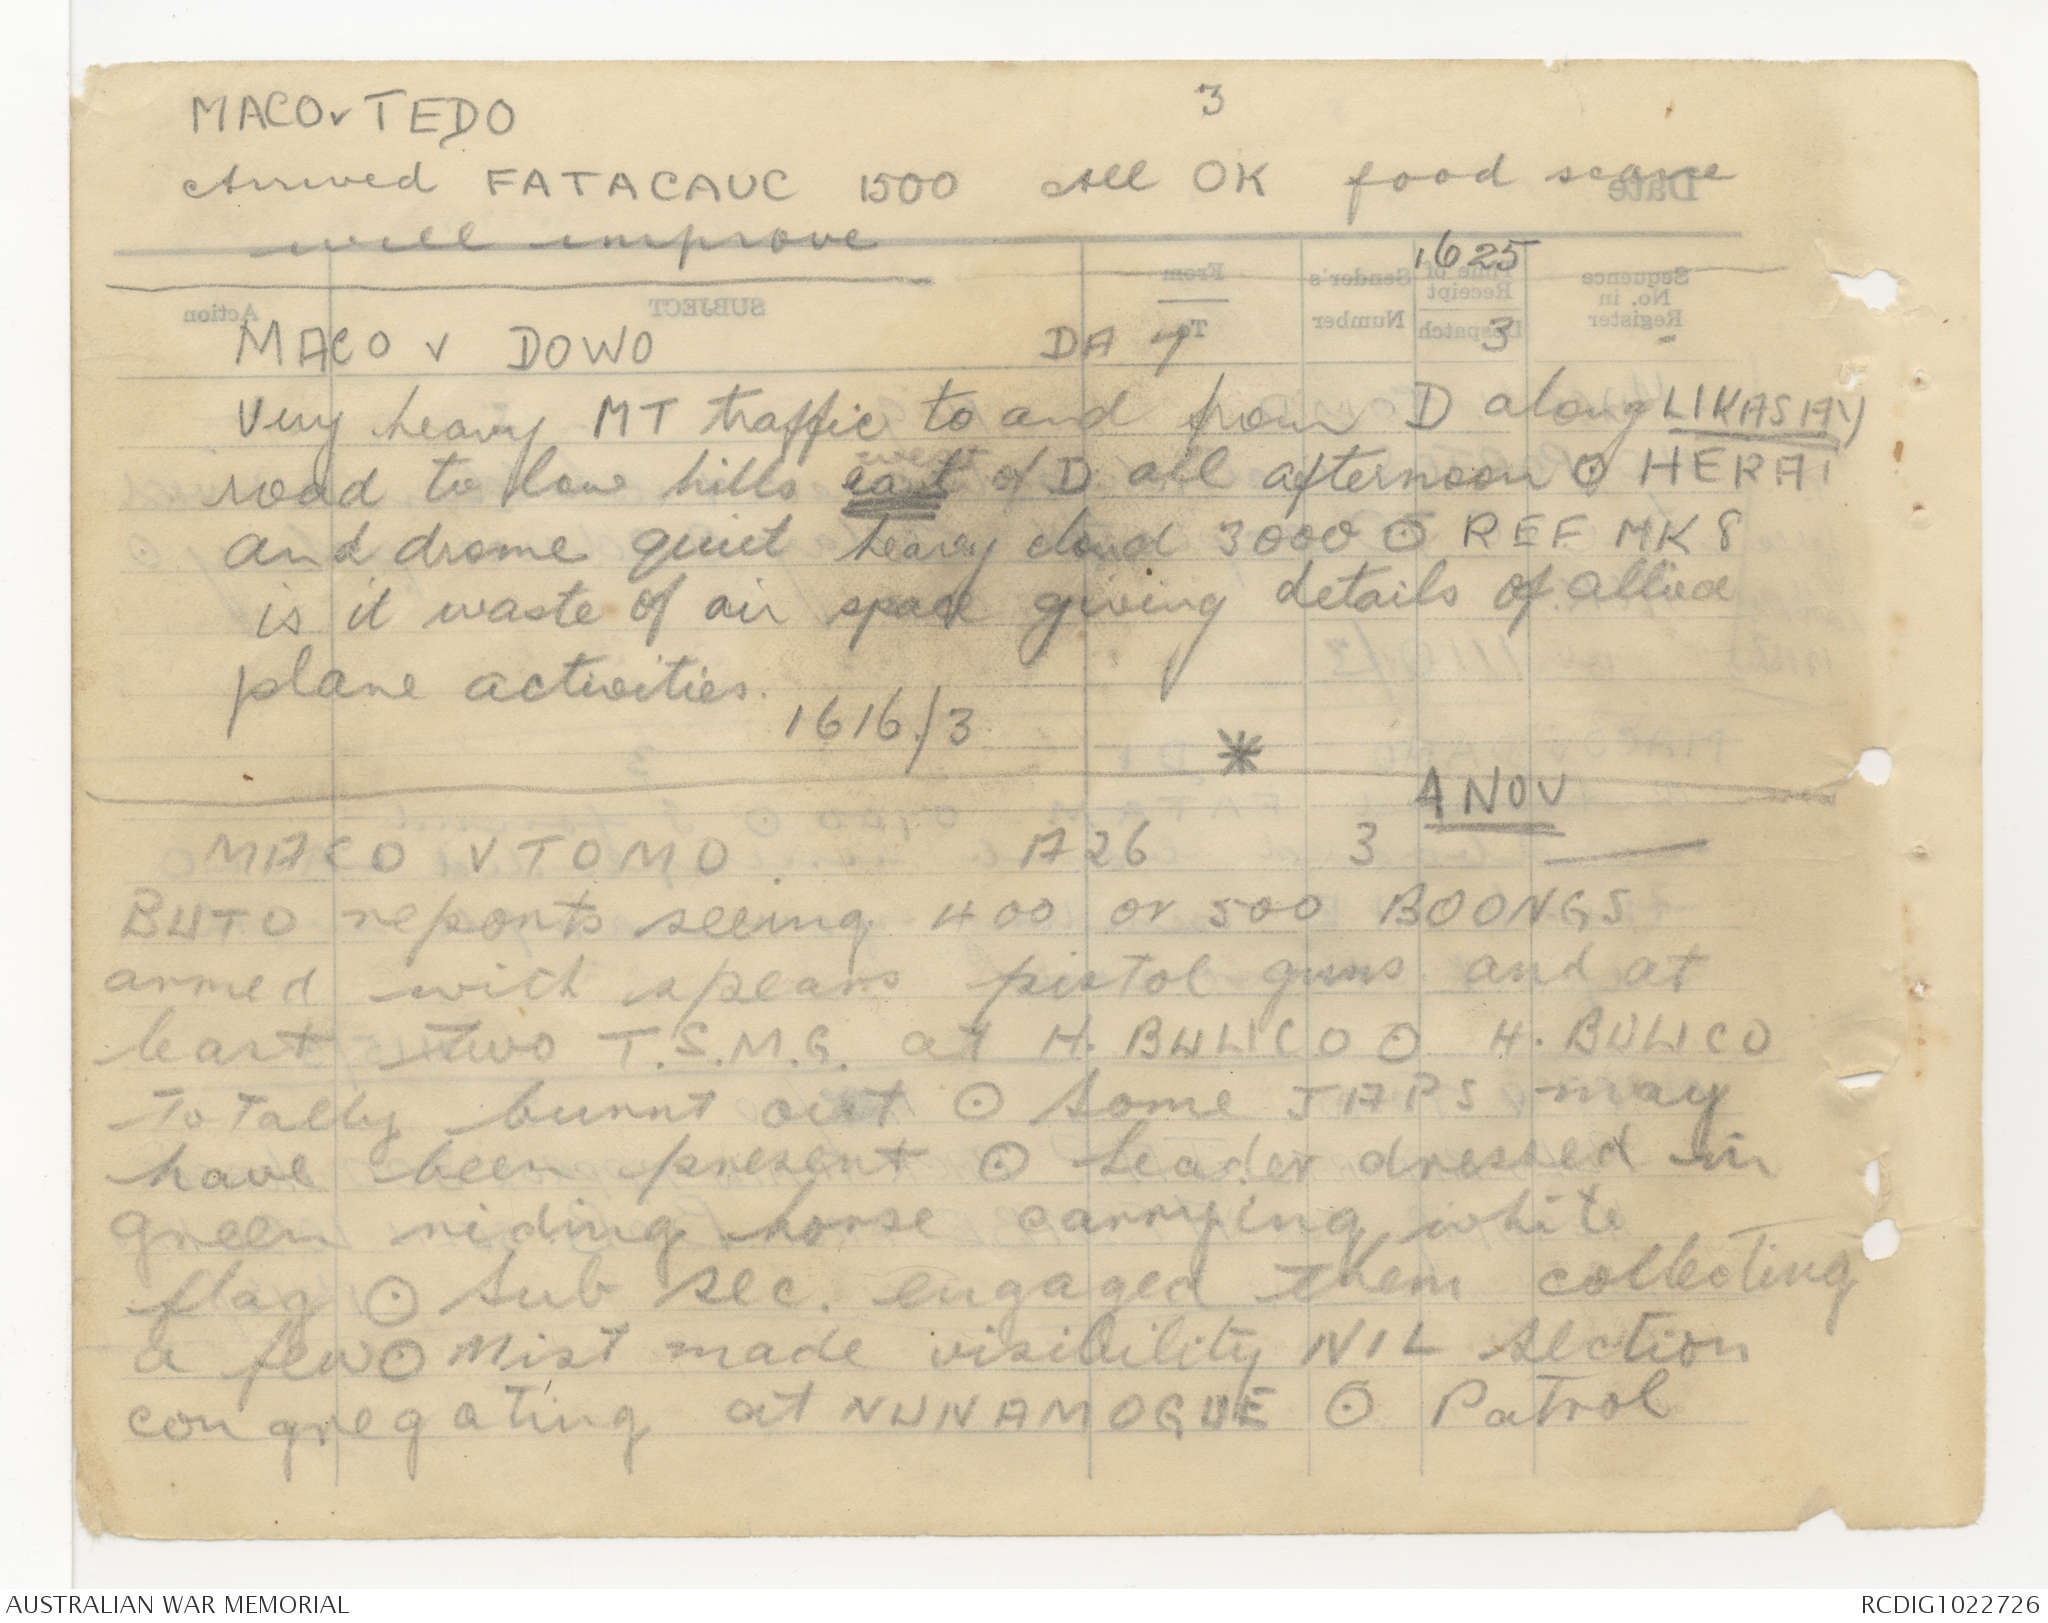 MACO v TEDO 3
Arrived FATACAUC 1500 All OK food scarce
will improve
1625
MACO v DOWO DA 7 3 -
Very heavy MT traffic to and from D along LIKASIAY
west
road to low hills east of D all afternoon ⊙ HERAI
and drome quiet heavy cloud 3000 ⊙ REF MK 8
is it waste of air space giving details of allied
plane activities.
1616/3
*
4 NOV
MACO v TOMO. A26 3 —
BUTO reports seeing 400 or 500 BOONGS
armed with spears pistol guns and at
least two T.S.M.G. at H. BULICO ⊙ H. BULICO
totally burnt out ⊙ Some JAPS may
have been present ⊙ Leader dressed in
green riding horse carrying white
flag ⊙ Sub sec. engaged them collecting
a few ⊙ Mist made visibility NIL section
congregating at NUNAMOGUE ⊙ Patrol
Date
Sequence No. in Register
Time of Receipt
Dispatch
Sender's Number
From
To
SUBJECT
Action
AUSTRALIAN WAR MEMORIAL
RCDIG1022726